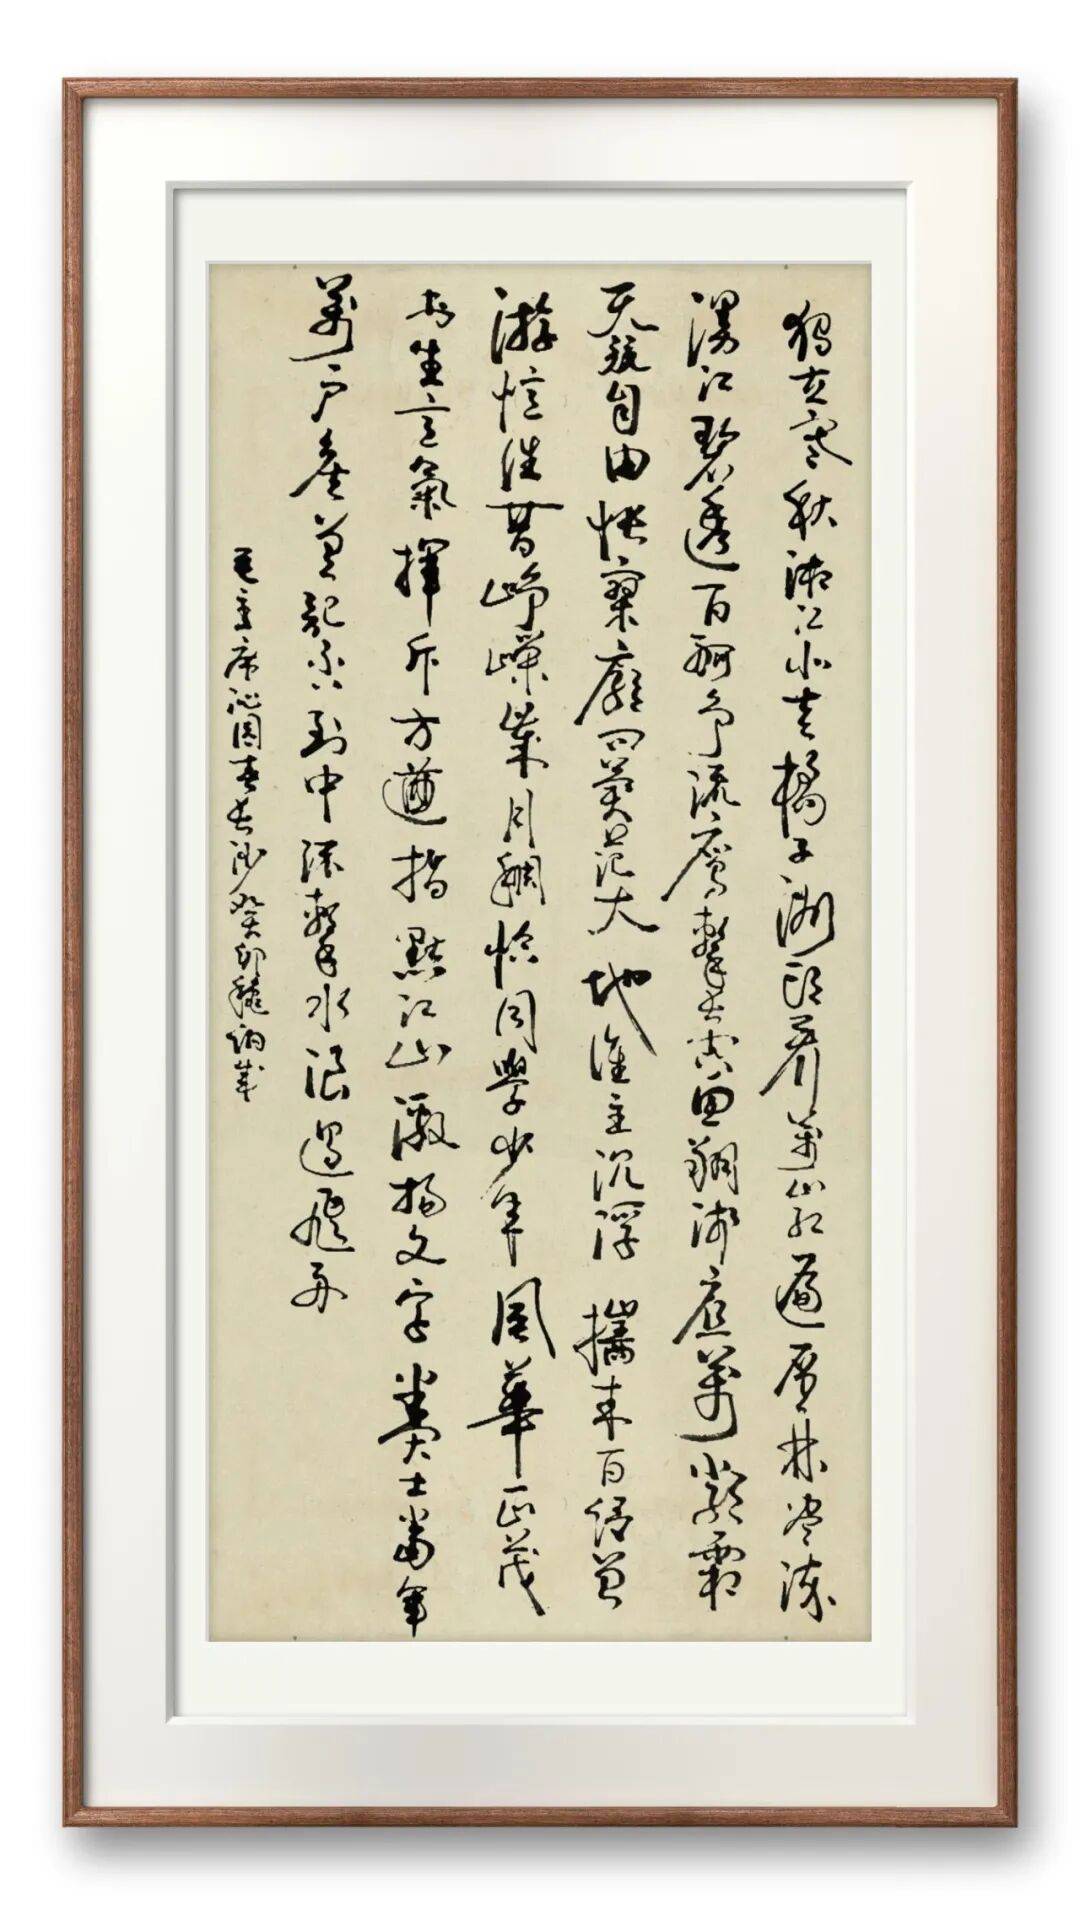 獨立寒秋湘江北去橘子洲頭看萬山紅遍層林盡染
漫江碧透百舸爭流鷹擊長空魚翔淺底萬類霜
天競自由悵寥廓問蒼茫大地誰主沉浮攜來百侶曾
游憶往昔崢嶸歲月稠恰同學少年風華正茂
書生意氣揮斥方遒指點江山激揚文字糞土當年
萬戶侯曾記否到中流擊水浪遏飛舟
毛主席沁園春長沙癸卯穐